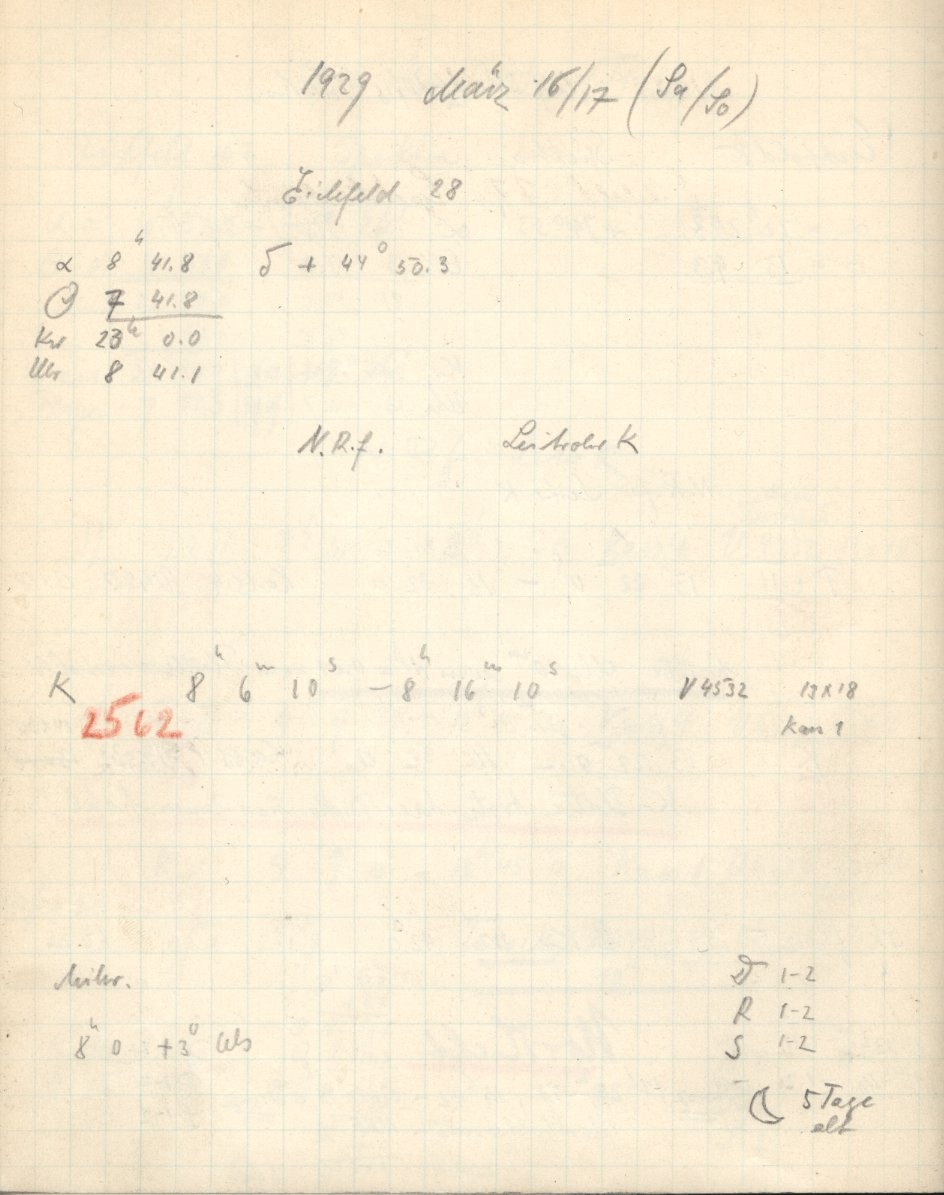 1929 März 16/17 (Sa/So)
Eichfeld 28
α 8ʰ 41.8 δ + 44° 50.3
7 41.8
23ʰ 0.0
Uhr 8 41.1
N.R.f. Leitrohr K
K 8ʰ 6ᵐ 10ˢ – 8ʰ 16ᵐ 10ˢ V 4532 13x18
2562 Kass 1
8ʰ 0 +3°
D 1-2
R 1-2
S 1-2
☾ 5 Tage
alt